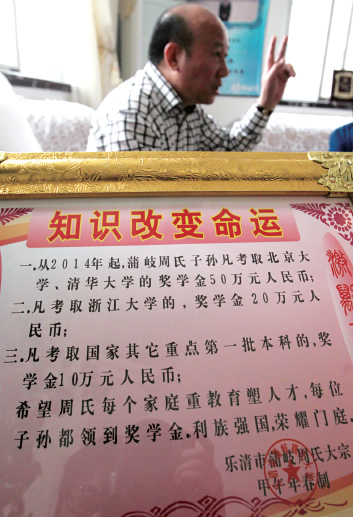 知识改变命运
一.从2014年起,蒲岐周氏子孙凡考取北京大
学、清华大学的奖学金50万元人民币;
二.凡考取浙江大学的,奖学金20万元人
民币;
三.凡考取国家其它重点第一批本科的,奖
学金10万元人民币;
希望周氏每个家庭重教育塑人才,每位
子孙都领到奖学金.利族强国,荣耀门庭.
乐清市蒲岐周氏大宗
甲午年春制